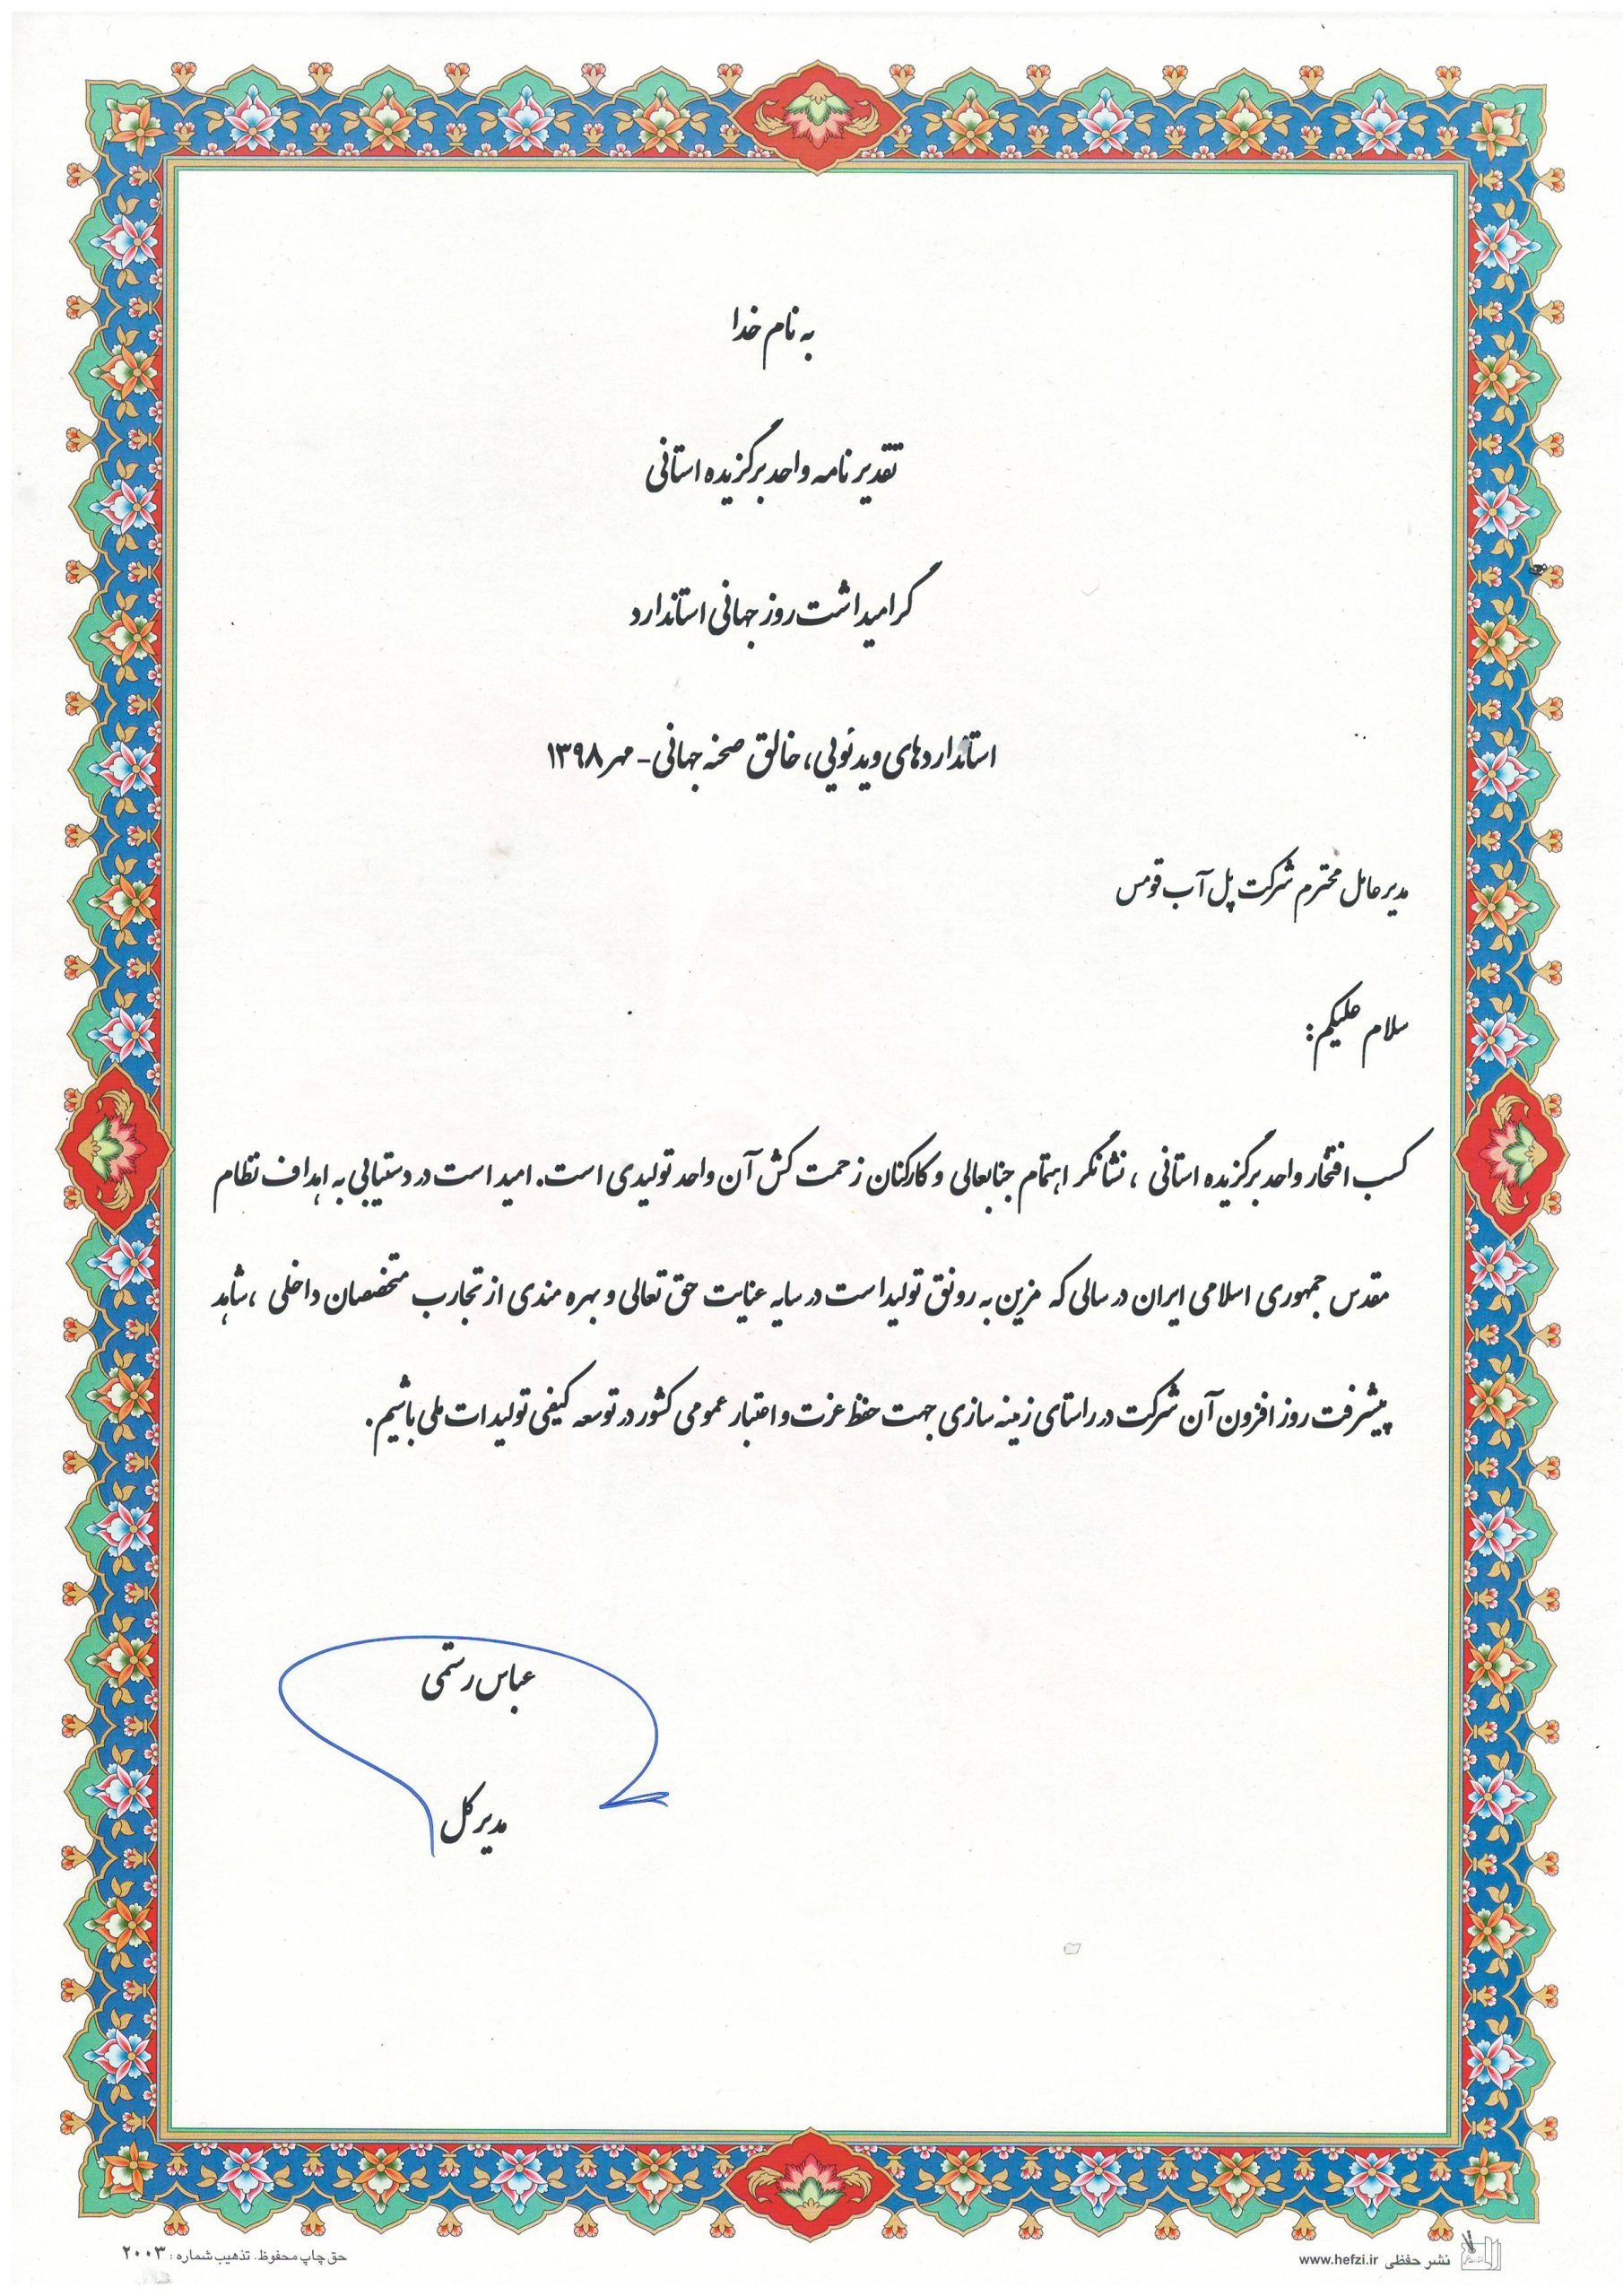 به نام خدا
تقدیر نامه واحد برگزیده استانی
گرامیداشت روز جهانی استاندارد
استانداردهای ویدئویی، خالق صحنه جهانی - مهر ۱۳۹۸
مدیرعامل محترم شرکت پل آب قومس
سلام علیکم:
کسب افتخار واحد برگزیده استانی ، نشانگر اهتمام جنابعالی و کارکنان زحمت کش آن واحد تولیدی است. امید است در دستیابی به اهداف نظام
مقدس جمهوری اسلامی ایران در سالی که مزین به رونق تولید است در سایه عنایت حق تعالی و بهره مندی از تجارب متخصصان داخلی ، شاهد
پیشرفت روز افزون آن شرکت در راستای زمینه سازی جهت حفظ عزت و اعتبار عمومی کشور در توسعه کیفی تولیدات ملی باشیم.
عباس رستمی
مدیر کل
نشر حفظی www.hefzi.ir
حق چاپ محفوظ. تذهیب شماره : ۲۰۰۳